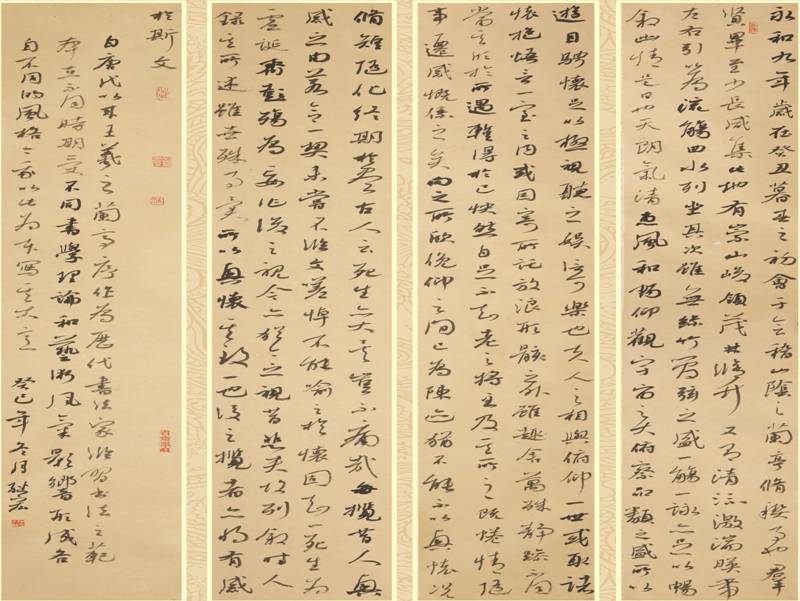 永和九年歲在癸丑暮春之初會于會稽山陰之蘭亭脩稧事也羣
賢畢至少長咸集此地有崇山峻領茂林脩竹又有清流激湍暎帶
左右引以為流觴曲水列坐其次雖無絲竹管弦之盛一觴一詠亦足以暢
敘幽情是日也天朗氣清惠風和暢仰觀宇宙之大俯察品類之盛所以
遊目騁懷足以極視聽之娛信可樂也夫人之相與俯仰一世或取諸
懷抱悟言一室之內或因寄所託放浪形骸之外雖趣舍萬殊靜躁不同
當其欣於所遇暫得於己快然自足不知老之將至及其所之既惓情隨
事遷感慨係之矣向之所欣俛仰之間已為陳迹猶不能不以興懷況
脩短隨化終期於盡古人云死生亦大矣豈不痛哉每攬昔人興
感之由若合一契未嘗不臨文嗟悼不能喻之於懷固知一死生為
虛誕齊彭殤為妄作後之視今亦猶今之視昔悲夫故列敘時人
錄其所述雖世殊事異所以興懷其致一也後之攬者亦將有感
於斯文
自唐代以來王羲之蘭亭序作為歷代書法家臨習書法之範
本在不同時期受不同書學理論和藝術風氣影響形成各
自不同的風格以此為本寫其大意
癸巳年冬月